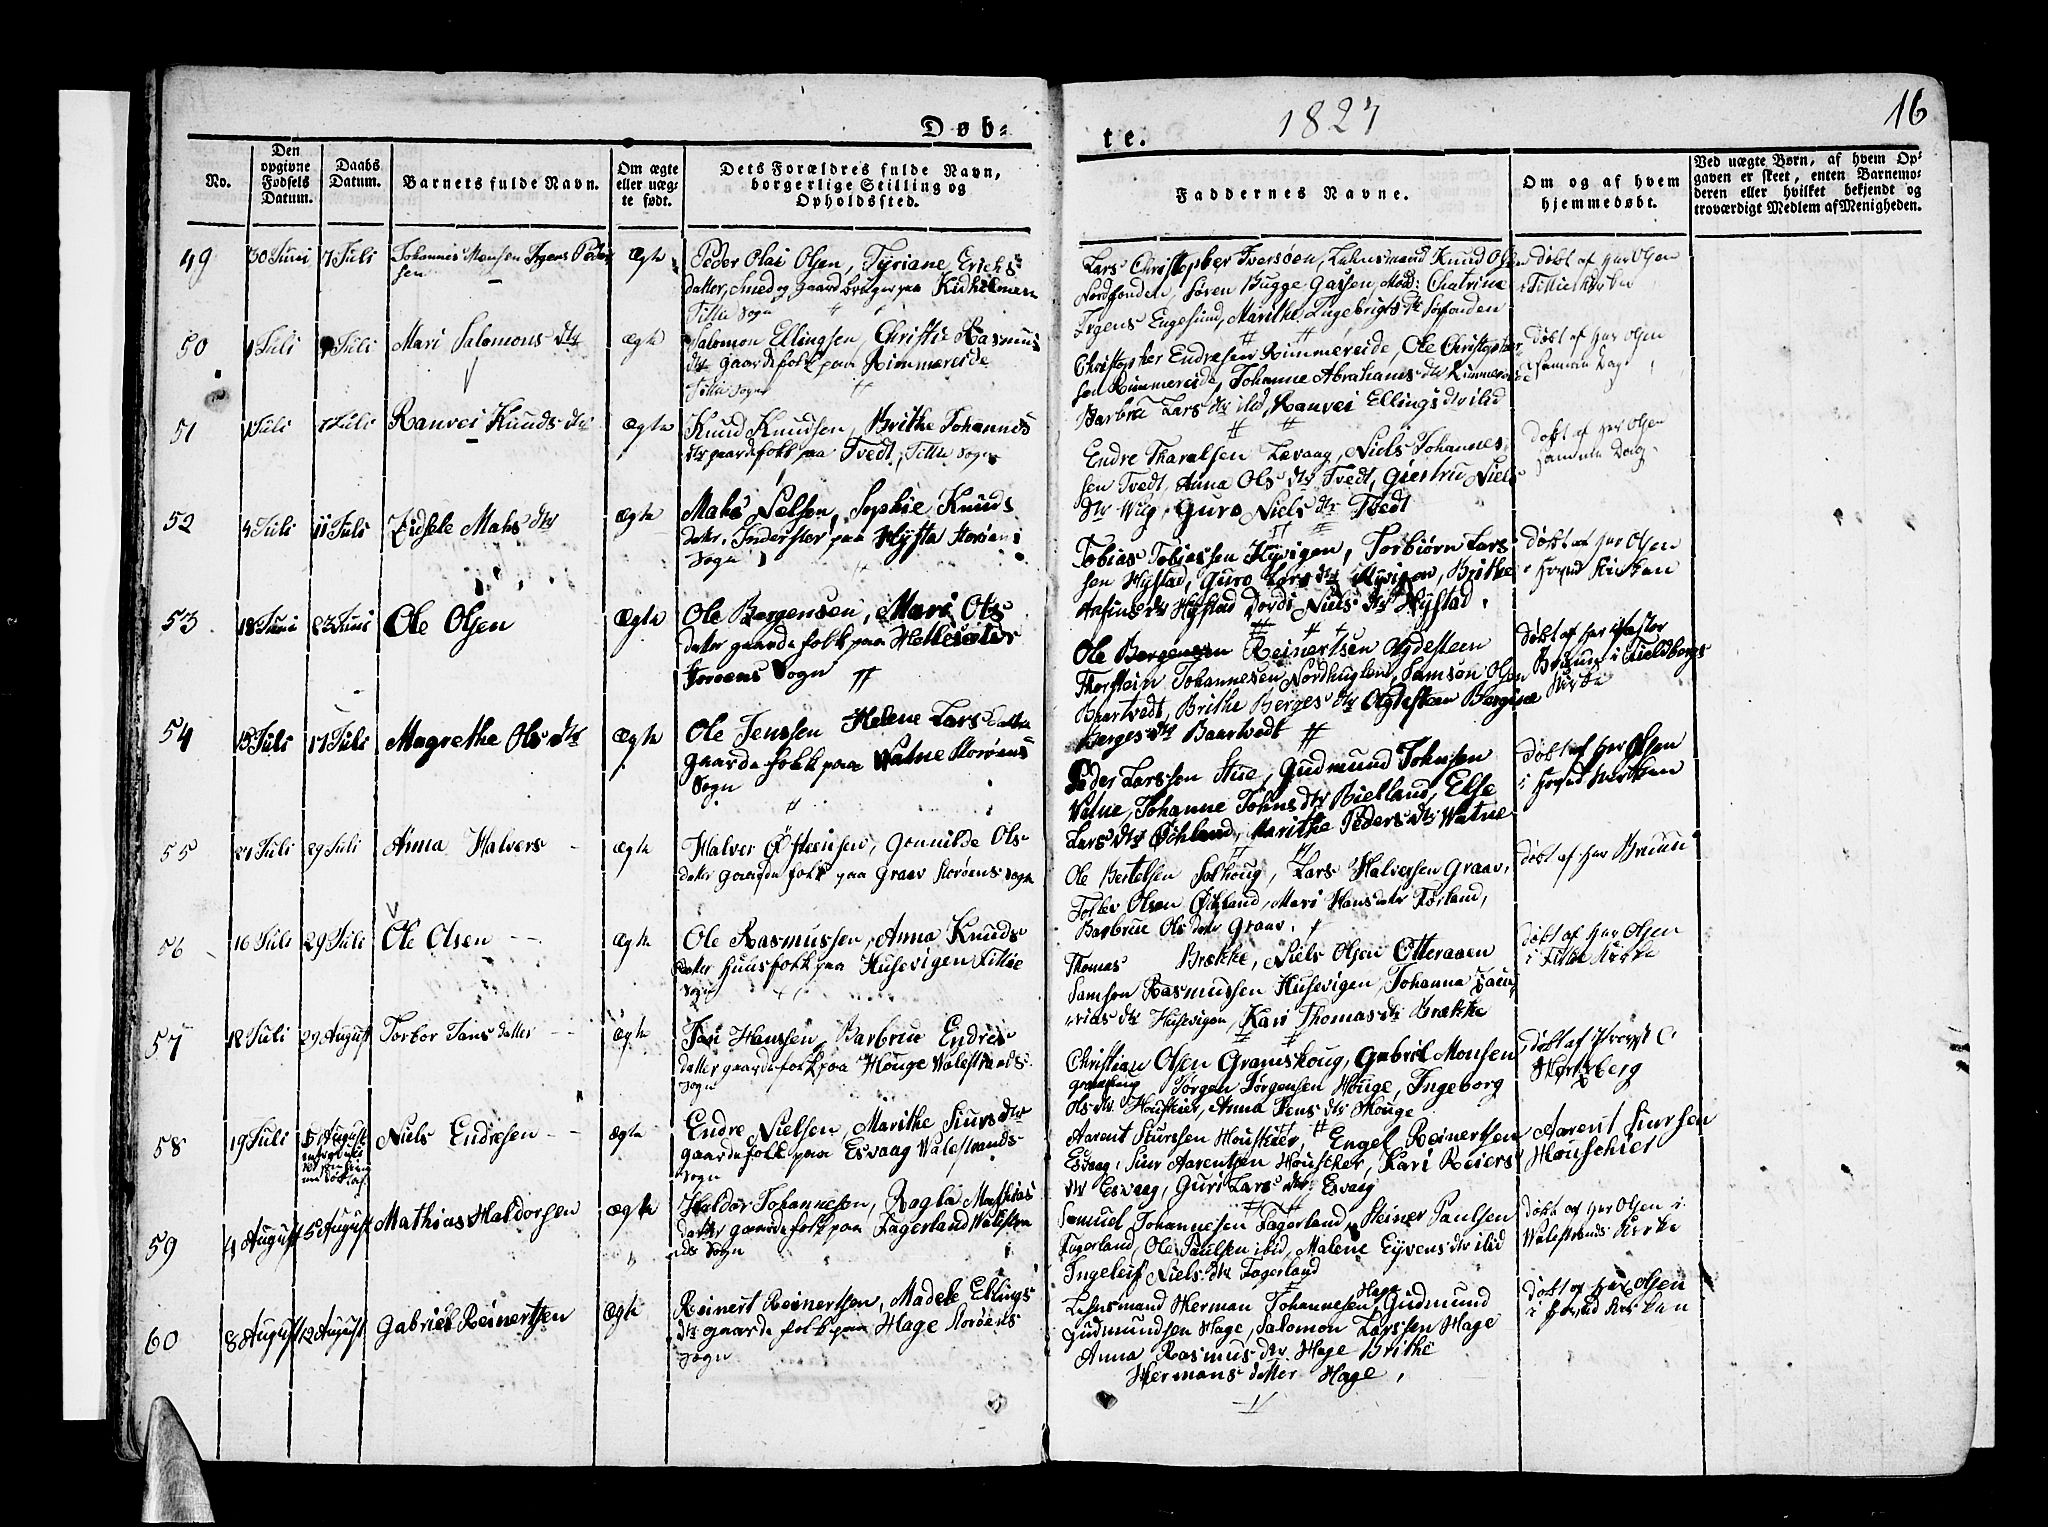 Døb-
te.
1827
16
No.
Den opgivne Fødsels Datum.
Daabs Datum.
Barnets fulde Navn.
Om ægte eller uægte født.
Dets Forældres fulde Navn, borgerlige Stilling og Opholdssted.
Faddernes Navne.
Om og af hvem hjemmedøbt.
Ved uægte Børn, af hvem Opgaven er skeet, enten Barnemoderen eller hvilket bekjendt og troværdigt Medlem af Menigheden.
49
30 Juni
7 Juli
Ægte
Peder Olai Olsen, Tyriane Erichs
datter, Smed og Gaardbruger paa
Fittie Sogn
Lars Christopher Iversøen, Lehnsmand Knud Olsen
Engesund, Marithe Ingebrigts dtr Sørfonden
døbt af Her Olsen
i Fittie Kirke
50
1 Juli
7 Juli
Mari Salomons dtr
Ægte
Salomon Ellingsen, Christie Rasmus
dtr gaardefolk paa Rimmereide
Fittie Sogn
Christopher Endresen Rimmereide, Ole Christopher
sen Rimmereide, Johanne Abrahams dtr Rimmereide
Barbru Lars dtr ibid, Ranvei Ellings dtr ibid
døbt af Her Olsen
samme Dag
51
1 Juli
7 Juli
Ranvei Knuds dtr
Ægte
Knud Knudsen, Brithe Johannes
dtr gaardefolk paa Tvedt, Fittie Sogn
Endre Tharalsen Lævaag, Niels Johannes
sen Tvedt, Anna Ols dtr Tvedt, Giertru Niels
dtr Wiig, Guro Niels dtr Tvedt
døbt af Her Olsen
samme Dag
52
4 Juli
11 Juli
Zidsele Mahs dtr
Ægte
Mahs Nelsen, Sophie Knuds
datter, Inderster paa Hysta Storøens
Sogn
Tobias Tobiassen Kyvigen, Torbiørn Lars
sen Hystad, Guro Lars dtr Kyvigen, Brithe
Anfins dtr Hystad, Dordi Niels dtr Hystad
døbt af Her Olsen
i Hoved Kirken
53
18 Juni
Ole Olsen
Ægte
Ole Bergensen, Mari Ols
datter gaardefolk paa Hellesøter
Storøens Sogn
Ole Reinertsen Nydesteen
Thorstein Johannesen Nordhugland, Samson Olsen
Baartvedt, Brithe Berges dtr
Berges dtr Baartvedt
døbt af Her Pastor
Bruun i Fieldbergs
Kirke
54
15 Juli
17 Juli
Magrethe Ols dtr
Ægte
Ole Jenssen Helene Lars datter
gaardefolk paa Watne Storøens
Sogn
Peder Larssen Stue, Gudmund Johnsen
Watne, Johanne Johns dtr Bielland, Else
Lars dtr Økland, Marithe Peders dtr Watne
døbt af Her Olsen
i Hoved Kirken
55
21 Juli
29 Juli
Anna Halvers
Ægte
Halver Østeensen, Gunnilde Ols
datter gaardefolk paa Graav Storøens Sogn
Ole Bertelsen Solhoug, Lars Halversen Graav,
Tollev Olsen Økland, Mari Hans datter Førland,
Barbrue Ols datter Graav.
døbt af Her Bruun
56
16 Juli
29 Juli
Ole Olsen
Ægte
Ole Rasmussen, Anna Knuds
datter Huusfolk paa Husevigen Fittie
Sogn
Thomas Brække, Niels Olsen Otteraaen
Samson Rasmussen Husevigen, Johanna
rias dtr Husevigen, Kari Thomas dtr Brække
døbt af Her Olsen
i Fittie Kirke
57
18 Juli
29 August
Torbor Jans datter
Ægte
Jan Hanssen, Barbrue Endres
datter gaardefolk paa Houge Walestrands
Sogn
Christian Olsen Gramskoug, Gabriel Monsen
Gramskoug Jørgen Jørgensen Houge, Ingeborg
Ols dtr Houskier, Anna Jens dtr Houge
døbt af Provst C
Hertzberg
58
19 Juli
5 August
Niels Endresen
Ægte
Endre Nielsen, Marithe Siurs dtr
gaardefolk paa Esvaag Walestrands
Sogn
Aarent Siurssen Houskier, Engel Reinertsen
Esvaag, Siur Aarentsen Houskier, Kari Reiers
dtr Esvaag, Guri Lars dtr Esvaag
Aarent Siursen
Houschier
59
4 August
5 August
Mathias Haldorsen
Ægte
Haldor Johannesen, Ragla Mathias
datter gaardefolk paa Fagerland Walestra
nds Sogn
Samuel Johannesen Fagerland, Steiner Paulsen
Fagerland, Ole Paulsen ibid, Malene Eyvens dtr ibid
Ingeleif Niels dtr Fagerland
døbt af Her Olsen i
Walestrands Kirke
60
8 August
12 August
Gabriel Reinertsen
Ægte
Reinert Reinertsen, Madele Ellings
dtr gaardefolk paa Hage Storøens
Sogn
Lehnsmand Herman Johannesen Hage, Gudmund
Gudmundsen Hage, Salomon Larssen Hage
Anna Rasmus dtr Hage Brithe
Hermans datter Hage,
døbt af Her Olsen
i Hoved Kirken